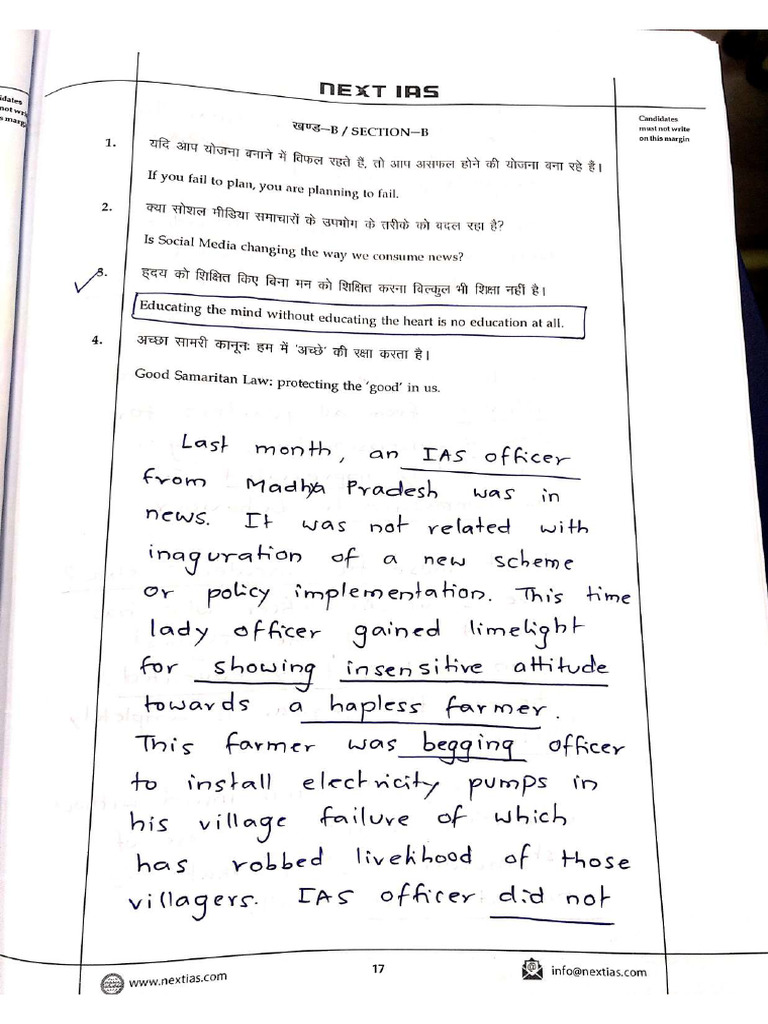 NEXT IAS
खण्ड–B / SECTION–B
Candidates
must not write
on this margin
1. यदि आप योजना बनाने में विफल रहते हैं, तो आप असफल होने की योजना बना रहे हैं।
If you fail to plan, you are planning to fail.
2. क्या सोशल मीडिया समाचारों के उपभोग के तरीके को बदल रहा है?
Is Social Media changing the way we consume news?
3. हृदय को शिक्षित किए बिना मन को शिक्षित करना बिल्कुल भी शिक्षा नहीं है।
Educating the mind without educating the heart is no education at all.
4. अच्छा सामरी कानूनः हम में 'अच्छे' की रक्षा करता है।
Good Samaritan Law: protecting the 'good' in us.
Last month, an IAS officer
from Madhya Pradesh was in
news. It was not related with
inaguration of a new scheme
or policy implementation. This time
lady officer gained limelight
for showing insensitive attitude
towards a hapless farmer.
This farmer was begging officer
to install electricity pumps in
his village failure of which
has robbed livelihood of those
villagers. IAS officer did not
www.nextias.com
17
info@nextias.com